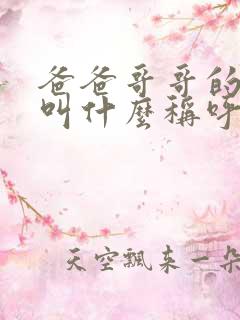 爸爸哥哥的
叫什麼稱呼
天空飄來一朵